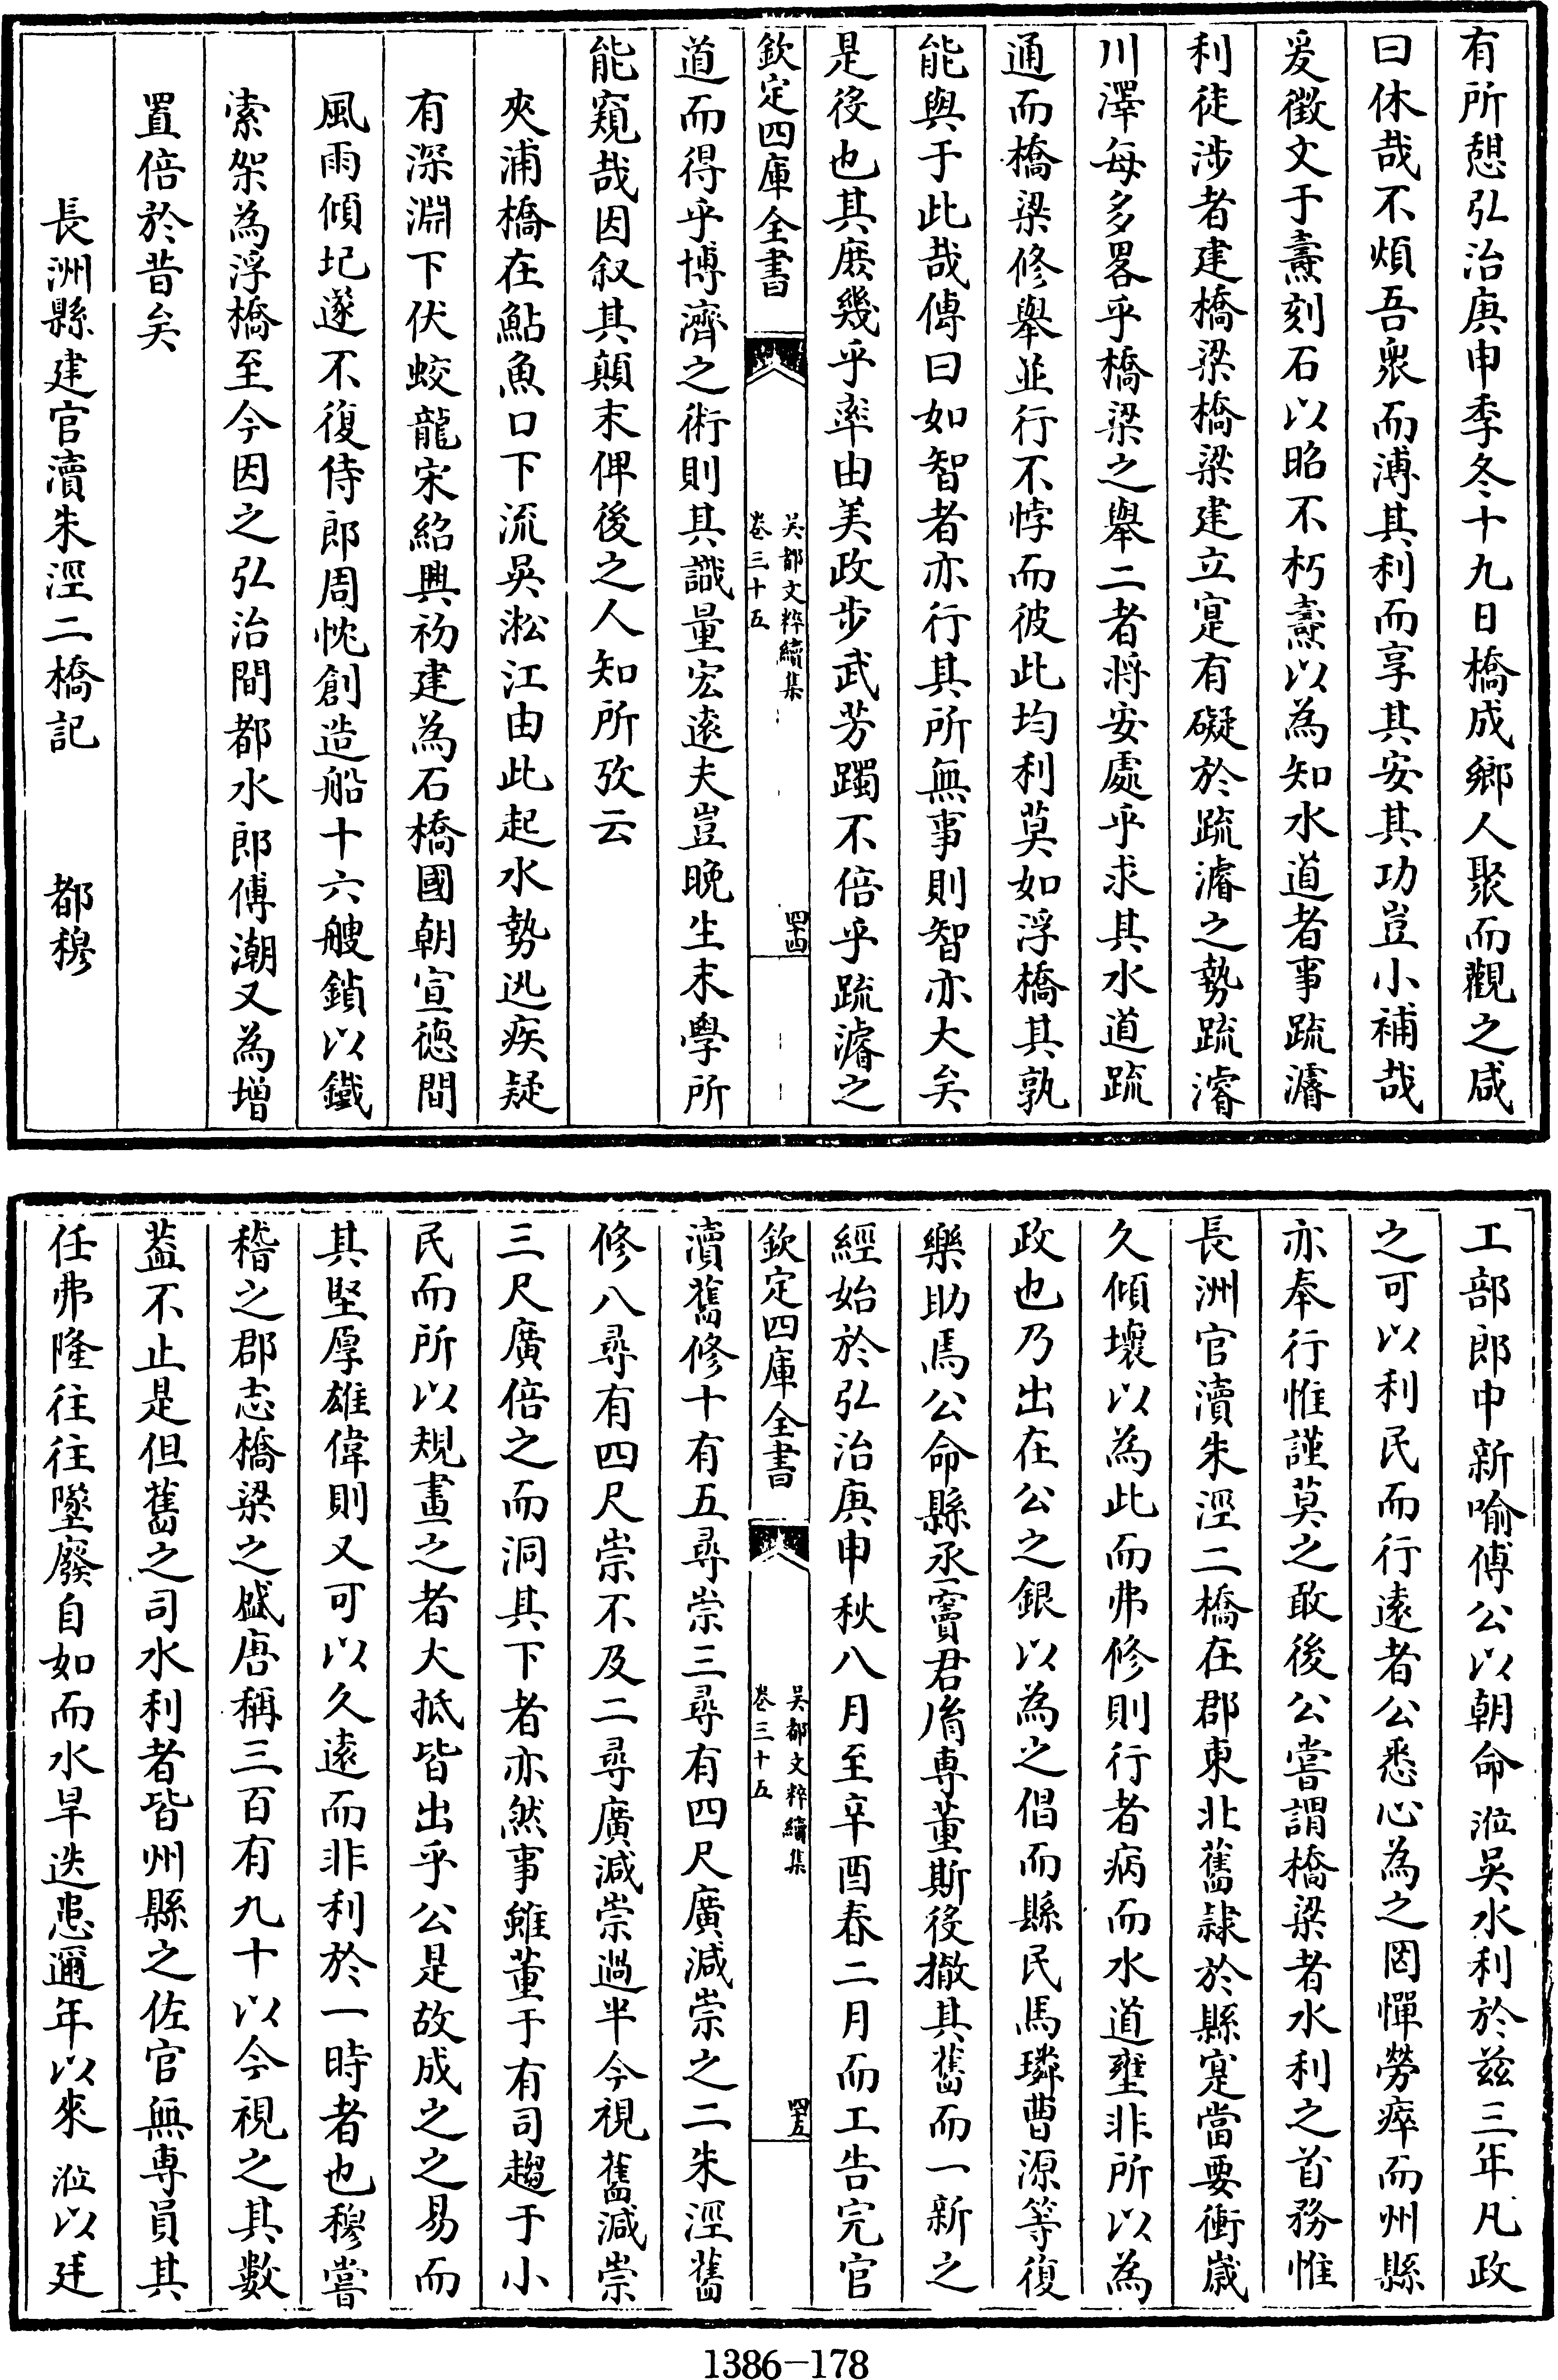 有所憩弘治庚申季冬十九日橋成鄉人聚而觀之咸
曰休哉不煩吾眾而溥其利而享其安其功豈小補哉
爰徵文于燾刻石以昭不朽燾以為知水道者事疏濬
利徒涉者建橋梁橋梁建立寔有礙於疏濬之勢疏濬
川澤每多畧乎橋梁之舉二者將安處乎求其水道疏
通而橋梁修舉並行不悖而彼此均利莫如浮橋其孰
能與于此哉傳曰如智者亦行其所無事則智亦大矣
是役也其庶幾乎率由美政步武芳躅不倍乎疏濬之
欽定四庫全書
吳都文粹續集
卷三十五
四十四
道而得乎博濟之術則其識量宏遠夫豈晚生末學所
能窺哉因叙其顛末俾後之人知所攷云
夾浦橋在鮎魚口下流吳淞江由此起水勢迅疾疑
有深淵下伏蛟龍宋紹興初建為石橋國朝宣德間
風雨傾圮遂不復侍郎周忱創造船十六艘鎖以鐵
索架為浮橋至今因之弘治間都水郎傅潮又為增
置倍於昔矣
長洲縣建官瀆朱涇二橋記 都穆
工部郎中新喻傅公以朝命涖吳水利於茲三年凡政
之可以利民而行遠者公悉心為之罔憚勞瘁而州縣
亦奉行惟謹莫之敢後公嘗謂橋梁者水利之首務惟
長洲官瀆朱涇二橋在郡東北舊隷於縣寔當要衝歲
久傾壞以為此而弗修則行者病而水道壅非所以為
政也乃出在公之銀以為之倡而縣民馬璘曹源等復
樂助焉公命縣丞竇君脩專董斯役撤其舊而一新之
經始於弘治庚申秋八月至辛酉春二月而工告完官
欽定四庫全書
吳都文粹續集
卷三十五
四十五
瀆舊修十有五尋崇三尋有四尺廣減崇之二朱涇舊
修八尋有四尺崇不及二尋廣減崇過半今視舊減崇
三尺廣倍之而洞其下者亦然事雖董于有司趨于小
民而所以規畫之者大抵皆出乎公是故成之之易而
其堅厚雄偉則又可以久遠而非利於一時者也穆嘗
稽之郡志橋梁之盛唐稱三百有九十以今視之其數
葢不止是但舊之司水利者皆州縣之佐官無專員其
任弗隆往往墜廢自如而水旱迭患邇年以來涖以廷
1386-178